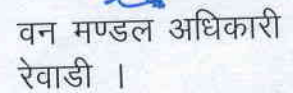 वन मण्डल अधिकारी
रेवाडी ।